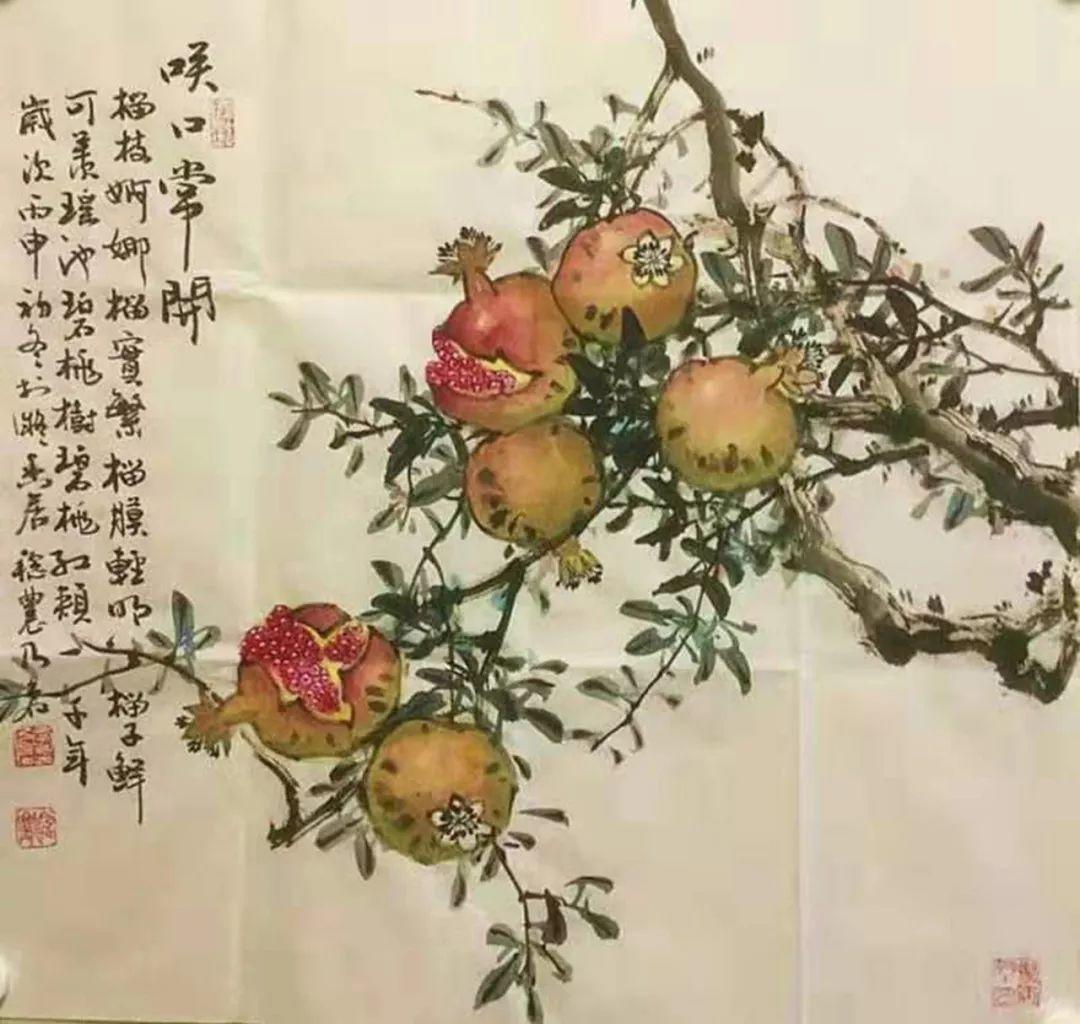 咲口常開
榴枝婀娜榴實繁榴膜輕明榴子鮮
可羨瑶池碧桃樹碧桃紅頰千年
歲次丙申初冬於凝香居農